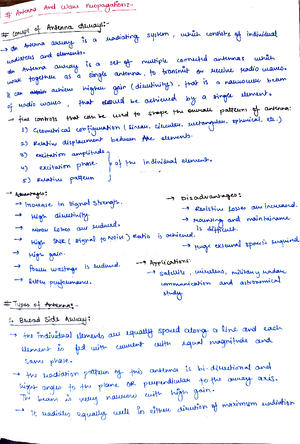 # Antenna And Wave Propagation:-
# Concept of Antenna Arrays:-
→ An Antenna array is a radiating system, which consists of individual
radiators and elements.
An Antenna array is a set of multiple connected antennas which
work together as a single antenna, to transmit or receive radio waves.
It can achieve higher gain (directivity), that is a narrower beam
of radio waves, that could be achieved by a single element.
→ five controls that can be used to shape the overall pattern of antenna:
1) Geometrical configuration (linear, circular, rectangular, spherical, etc.)
2) Relative displacement between the elements.
3) excitation amplitude
4) excitation phase } of the individual element.
5) Relative pattern
→ Advantages:-
→ Increase in signal strength.
→ High directivity.
→ Minor lobes are reduced.
→ High SNR (Signal to Noise) Ratio is achieved.
→ High gain.
→ Power wastage is reduced.
→ Better performance.
→ Disadvantages:-
→ Resistive losses are increased.
→ Mounting and maintainance
is difficult.
→ Huge external space is required
→ Applications:-
→ Satellite, wireless, military radar
communication and astronomical
study
# Types of Antenna:-
1. Broad Side Array:-
→ the individual elements are equally spaced along a line and each
element is fed with current with equal magnitude and
same phase.
→ the radiation pattern of this antenna is bi-directional and
right angles to the plane or perpendicular to the array axis.
The beam is very narrow with high gain.
→ It radiates equally well in either direction of maximum radiation